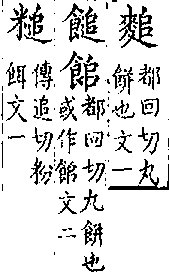 都回切丸
餅也文一
䭔館
都回切九餅也
或作館文二
傳追切粉
餌文一